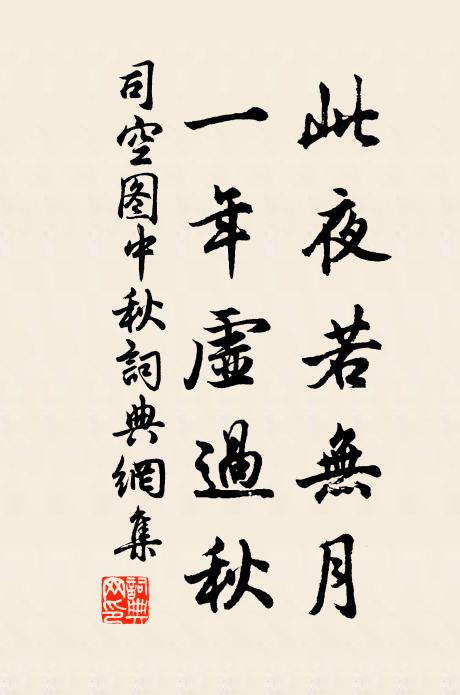 此夜若無月
一年虛過秋
司空图中秋詞典網集
詞典网印